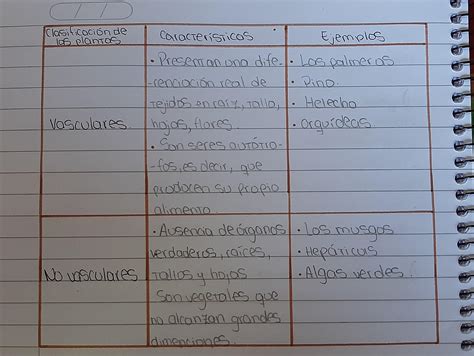 Clasificación de las plantas
Características
Ejemplos
Vasculares.
• Presentan una dife-
renciación real de
tejidos en raíz, tallo,
hojas, flores.
• Son seres autótro-
-fos, es decir, que
producen su propio
alimento.
• Las palmeras
• Pino.
• Helecho
• orquídeas.
No vasculares.
• Ausencia de órganos
verdaderos, raíces,
tallos y hojas
Son vegetales que
no alcanzan grandes
dimenciones.
• Los musgos
• Hepáticas
• Algas verdes.